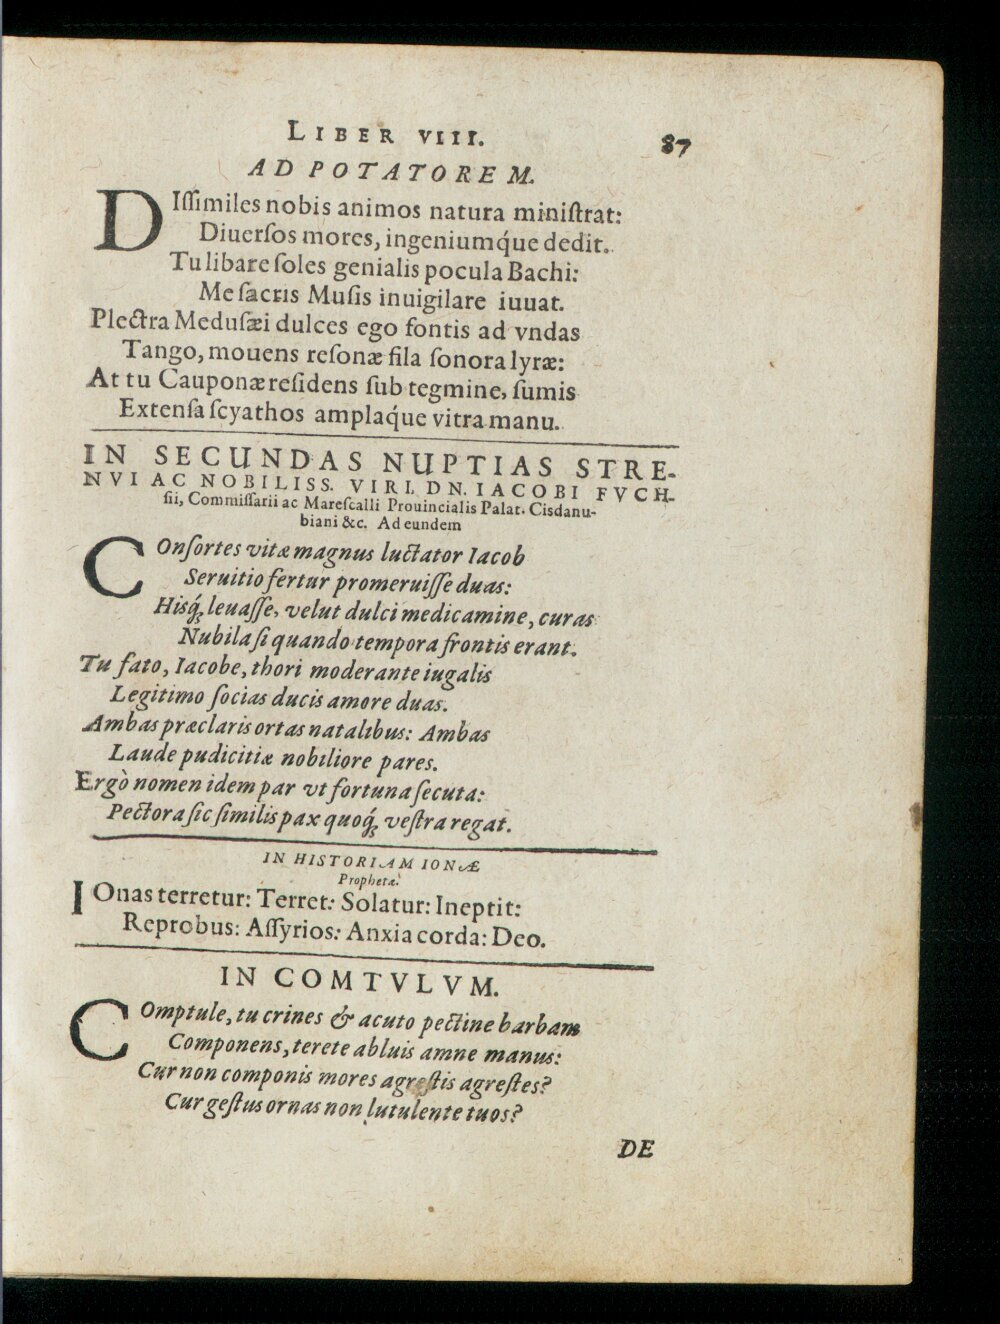 LIBER VIII. 87
AD POTATOREM.
DIſſimiles nobis animos natura miniſtrat:
Diuerſos mores, ingeniumq́ue dedit.
Tu libare ſoles genialis pocula Bachi:
Me ſacris Muſis inuigilare iuuat.
Plectra Meduſæi dulces ego fontis ad vndas
Tango, mouens reſonæ fila ſonora lyræ:
At tu Cauponæ reſidens ſub tegmine, ſumis
Extenſa ſcyathos amplaq́ue vitra manu.
IN SECUNDAS NUPTIAS STRE-
NVI AC NOBILISS. VIRI, DN. IACOBI FVCH-
ſii, Commiſſarii ac Mareſcalli Prouincialis Palat. Cisdanu-
biani &c. Ad eundem
COnſortes vitæ magnus luctator Iacob
Seruitio fertur promeruiſſe duas:
Hisq́; leuaſſe, velut dulci medicamine, curas
Nubila ſi quando tempora frontis erant.
Tu fato, Iacobe, thori moderante iugalis
Legitimo ſocias ducis amore duas.
Ambas præclaris ortas natalibus: Ambas
Laude pudicitiæ nobiliore pares.
Ergò nomen idem par vt fortuna ſecuta:
Pectora ſic ſimilis pax quoq́; veſtra regat.
IN HISTORIAM IONÆ
Prophetæ.
IOnas terretur: Terret: Solatur: Ineptit:
Reprobus: Aſſyrios: Anxia corda: Deo.
IN COMTVLVM.
COmptule, tu crines & acuto pectine barbam
Componens, terete abluis amne manus:
Cur non componis mores agreſtis agreſtes?
Cur geſtus ornas non lutulente tuos?
DE